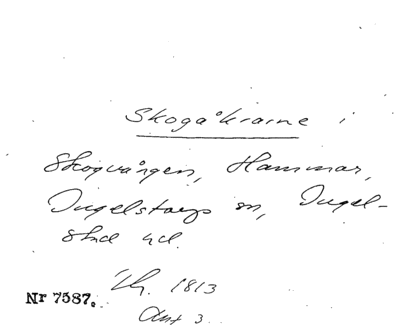 Skogåkrarne i
Skogvången, Hammar,
Ingelstorps sn, Ingel-
stad hd.
1813
Nr 7587.
Akt 3